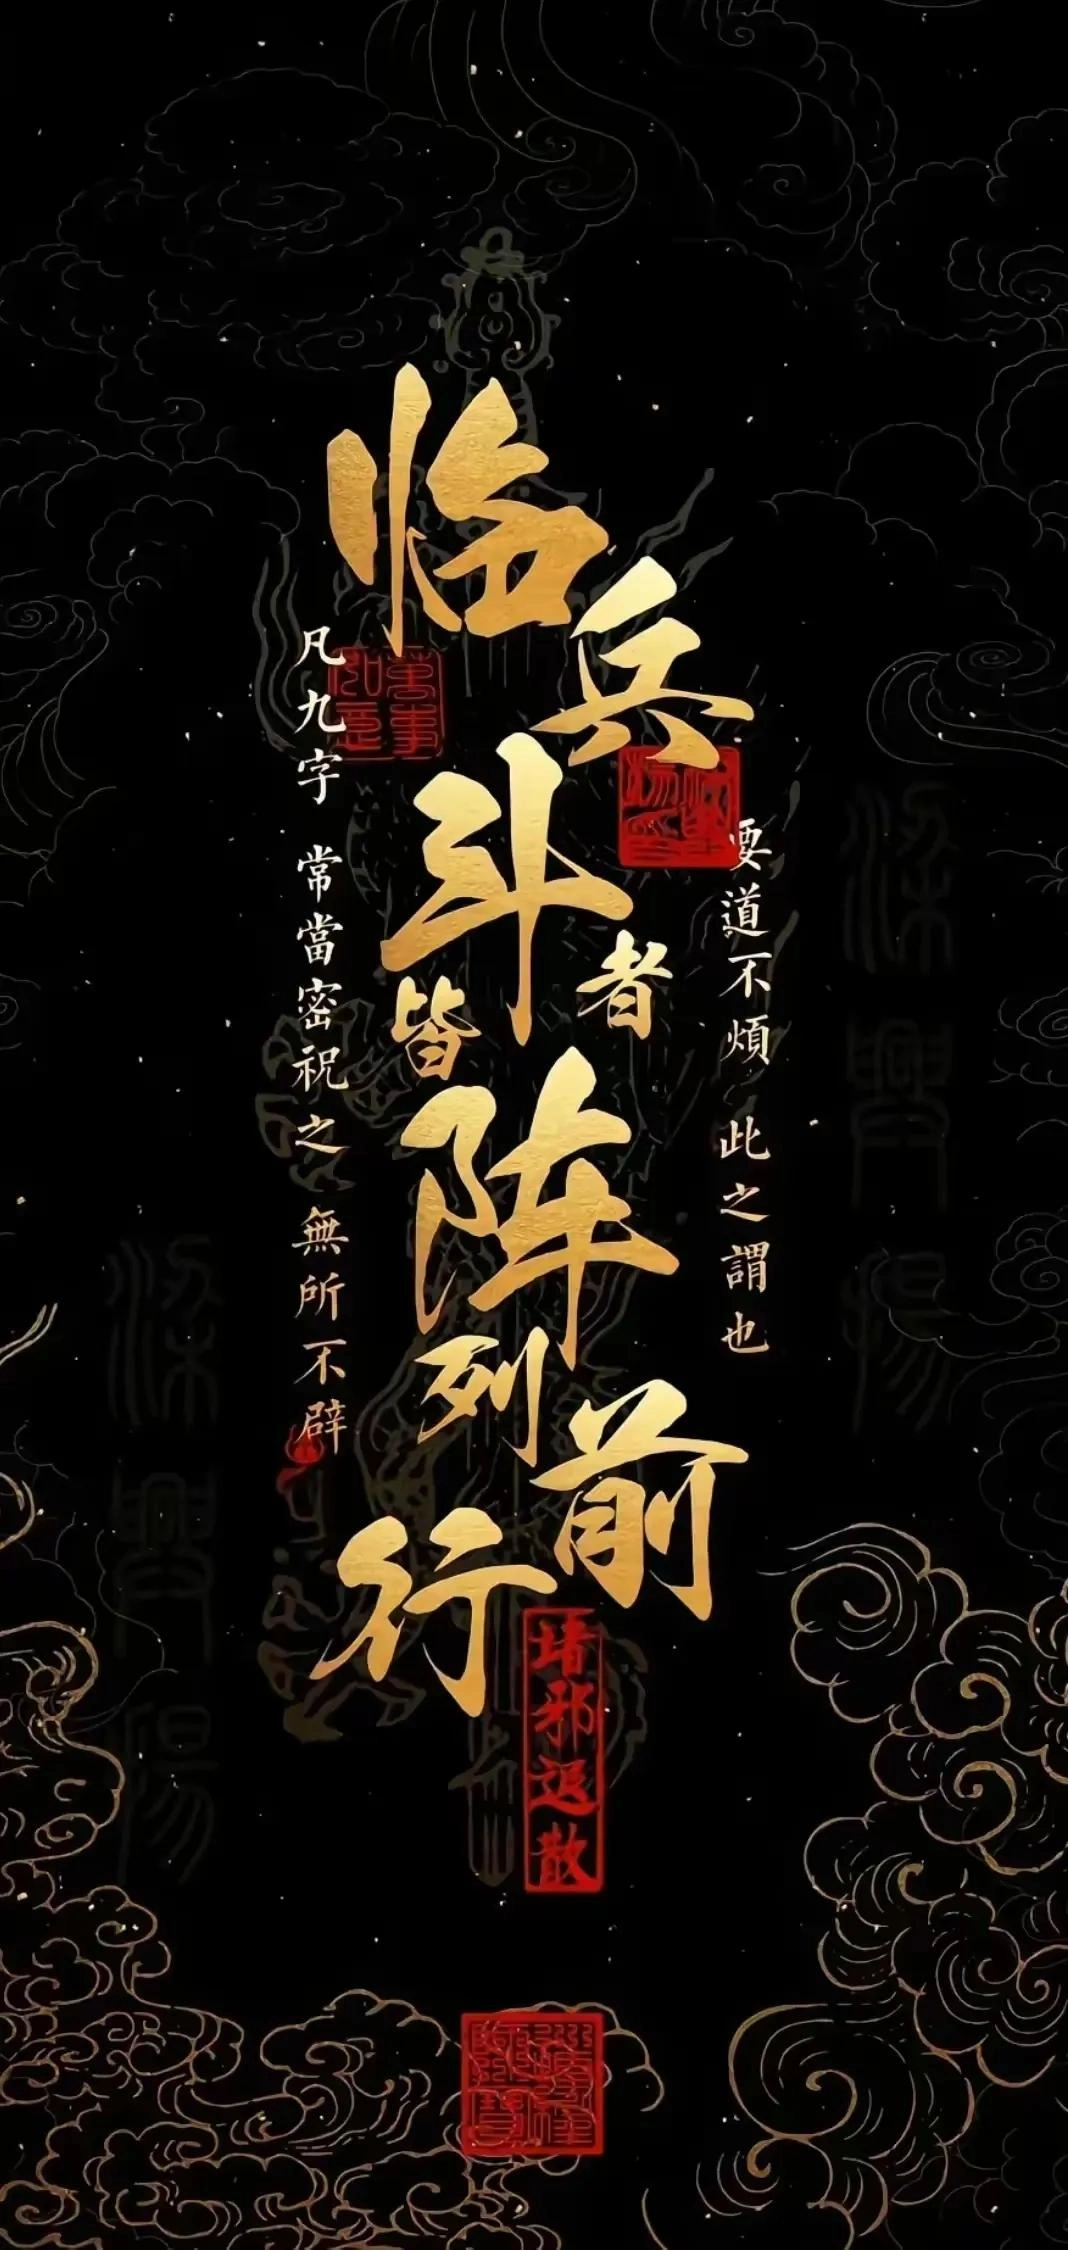 临兵斗者皆阵列前行
凡九字 常當密祝之 無所不辟
要道不煩 此之謂也
萬事如意
诸邪退散